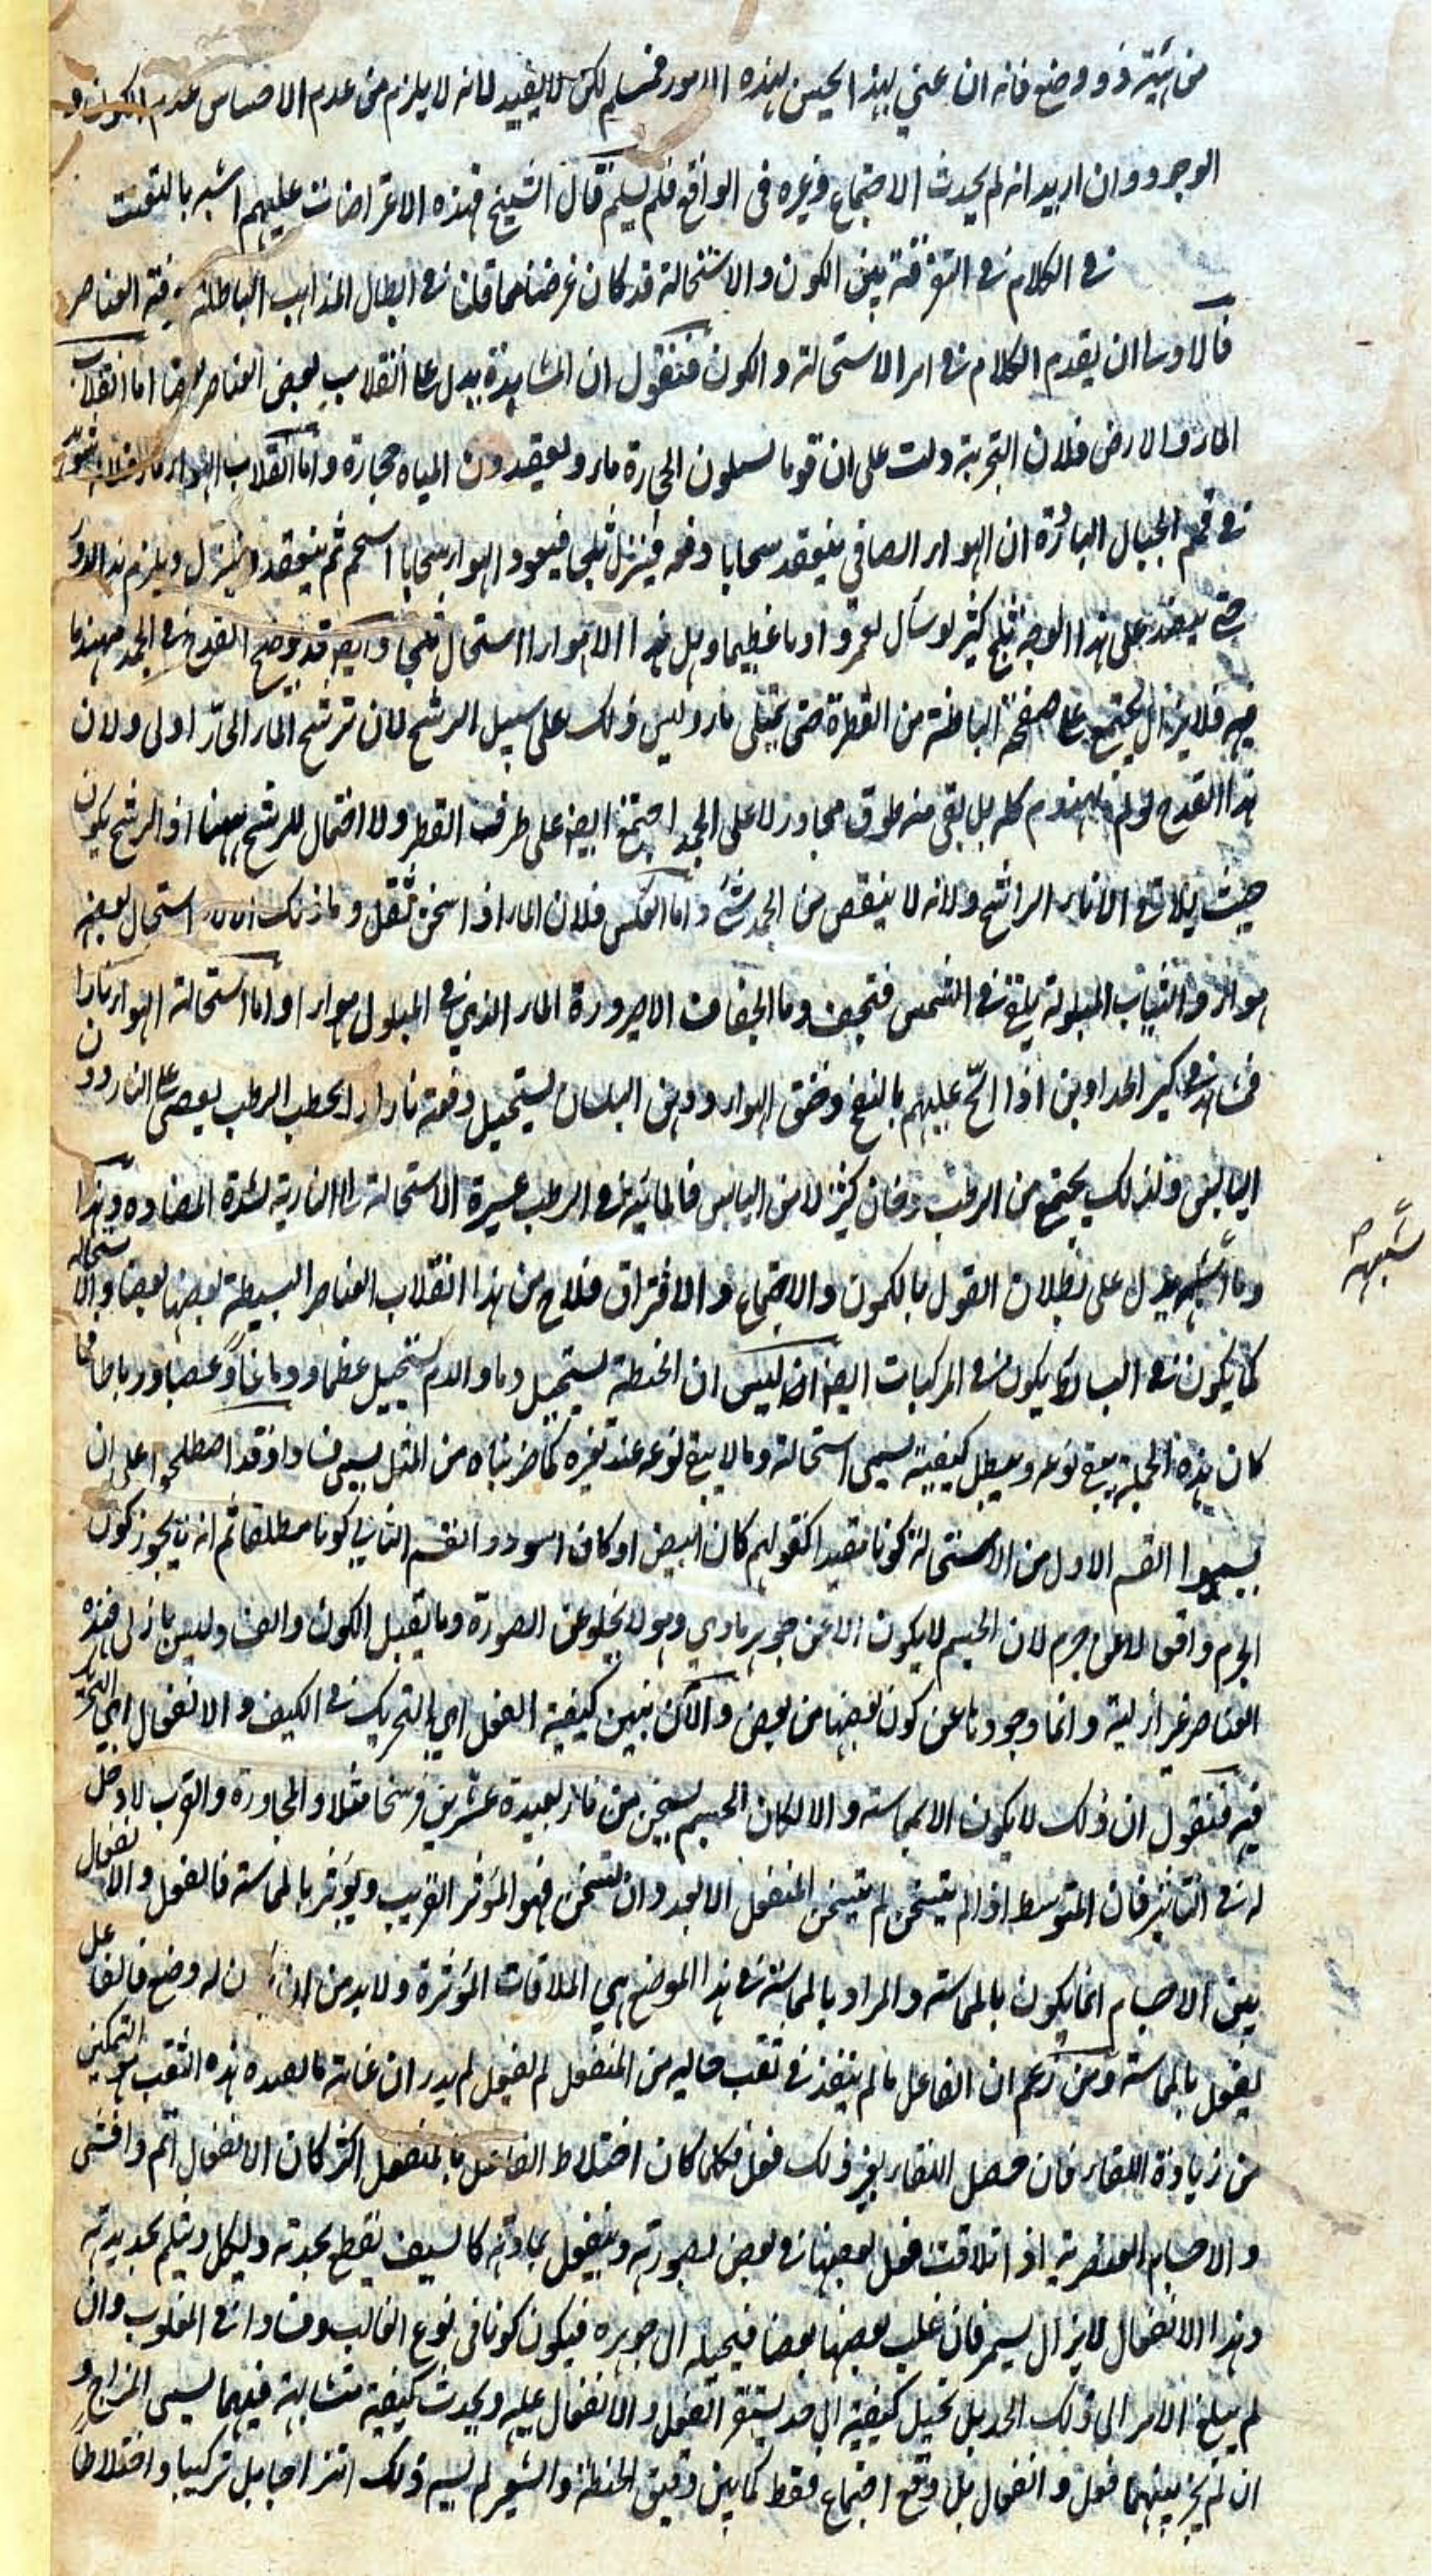 من شيء ذو وضع فانه ان عني بهذا الحس هذه الامور فمسلم لكن لا يفيد لانه لا يلزم من عدم الاحساس عدم الكون و
الوجود وان اريد انه لم يحدث الاجتماع وغيره فى الواقع فلم يسلم قال الشيخ فهذه الاعتراضات عليهم اشبه بالتعنت
فى الكلام فى التفرقة بين الكون والاستحالة قد كان غرضنا مما قلنا فى ابطال المذاهب الباطلة العناصر
فالاولى ان يقدم الكلام فى امر الاستحالة والكون فنقول ان المشاهدة يدل على انقلاب بعض العناصر بعضا اما انقلاب
الماء والارض فلان التجربة دلت على ان قوما يسيلون الحجارة ماء ويعقدون المياه حجارة واما انقلاب الهواء ماء فلانه
فى قمم الجبال الباردة ان الهواء الصافي ينعقد سحابا دفعه فينزل ثلجا فيعود الهواء سحابا اسحم ثم ينعقد وينزل ويلزم هذا الدور
حتى ينعقد على هذا الوجه ثلج كثير لو سال لغمر واديا عظيما وهل هذا الا هواء استحال ثلجا وايضا قد يوضع القدح فى الجمد مهندما
فيه فلا يزال يجتمع على صفحته الباطنة من القطر حتى يمتلى ماء وليس ذلك على سبيل الرشح لان ترشح الماء الحار اولى ولان
هذا القدح لو لم يهندم كله بل بقى منه طرق مجاور لا على الجمد اجتمع ايضا على طرف القطر ولا احتمال للرشح ههنا اذ الرشح يكون
حيث يلاقي الاناء الراشح ولانه لا ينقص من الجمد شئ واما العكس فلان الماء اذا سخن ثقل وما ذلك الا لانه استحال بعضه
هواء والثياب المبلولة يلقى فى الشمس فتجف وما الجفاف الا صيرورة الماء الذي فى المبلول هواء واما استحالة الهواء نارا
فمشاهد فى كير الحدادين اذا الح عليهم بالنفخ وخنق الهواء ودهن البلسان يستحيل دفعة نارا والحطب الرطب يعصى على النار دون
اليابس ولذلك يجتمع من الرطب دخان كثير لا من اليابس فالمائية فى الرطب عسيرة الاستحالة الى النارية لشدة المضادة وهذا
وما اشبهه يدل على بطلان القول بالكمون والاجتماع والافتراق فلاح من هذا انقلاب العناصر البسيطة بعضها بعضا والاستحاله
كما يكون فى البسائط يكون فى المركبات ايضا اذ ليس ان الحنطة يستحيل دما والدم يستحيل عظما ودماغا وعصبا ورباطا فما
كان بهذه الجملة يبقى نوعه ويبطل كيفيته يسمى استحالة وما لا يبقى نوعه عند تغيره كما ضربناه من المثل يسمى فسادا وقد اصطلحوا على ان
يسموا القسم الاول من الاستحالة كونا مقيدا كقولهم كان ابيض او كان اسود والقسم الثاني كونا مطلقا ثم انه يجوز كون
الجرم واقعا لا عن جرم لان الجسم لا يكون الا عن جوهر مادي وهو لا يخلو عن الصورة وما يقبل الكون والفساد ليس بازلى فهذه
العناصر غير ازلية وانما وجودها عن كون بعضها من بعض والآن نبين كيفية الفعل اي التحريك فى الكيف والانفعال اي التحرك
فيه فنقول ان ذلك لا يكون الا بمماسة والا لكان الجسم يسخن من نار بعيدة عشرين فرسخا مثلا والمجاورة والقرب لا دخل
له فى التاثير فان المتوسط اذا لم يتسخن لم يتسخن المنفعل الابعد وان تسخن فهو المؤثر القريب ويؤثر بالمماسة فالفعل والانفعال
بين الاجسام انما يكون بالمماسة والمراد بالمماسة فى هذا الموضع هي الملاقات المؤثرة ولا بد من ان يكون له وضع فالفاعل
يفعل بالمماسة ومن زعم ان الفاعل ما لم ينفذ فى ثقب خاليه من المنفعل لم يفعل لم يدر ان غاية ما يفيده هذه الثقب هو التمكين
من زيادة اللقاء فان حصل اللقاء بغير ذلك فعل فكلما كان اختلاط الفاعل بالمنفعل اكثر كان الانفعال اتم وافشى
والاجسام العنصرية اذا تلاقت فعل بعضها فى بعض بصورته وينفعل بمادته كالسيف يقطع بحدته وليكل ويثلم بحديديته
وهذا الانفعال لا يزال يستمر فان غلب بعضها بعضا فيحيله الى جوهره فيكون كونا فى نوع الغالب وفسادا فى المغلوب وان
لم يبلغ الامر الى ذلك الحد بل تحيل كيفيته الى حد يستقر الفعل والانفعال عليه ويحدث كيفية متشابهة فيهما يسمى المزاج و
ان لم يجز بينهما فعل وانفعال بل وقع اجتماع فقط كما بين دقيق الحنطة والشعير لم يسم ذلك امتزاجا بل تركيبا واختلاطا
شبهه